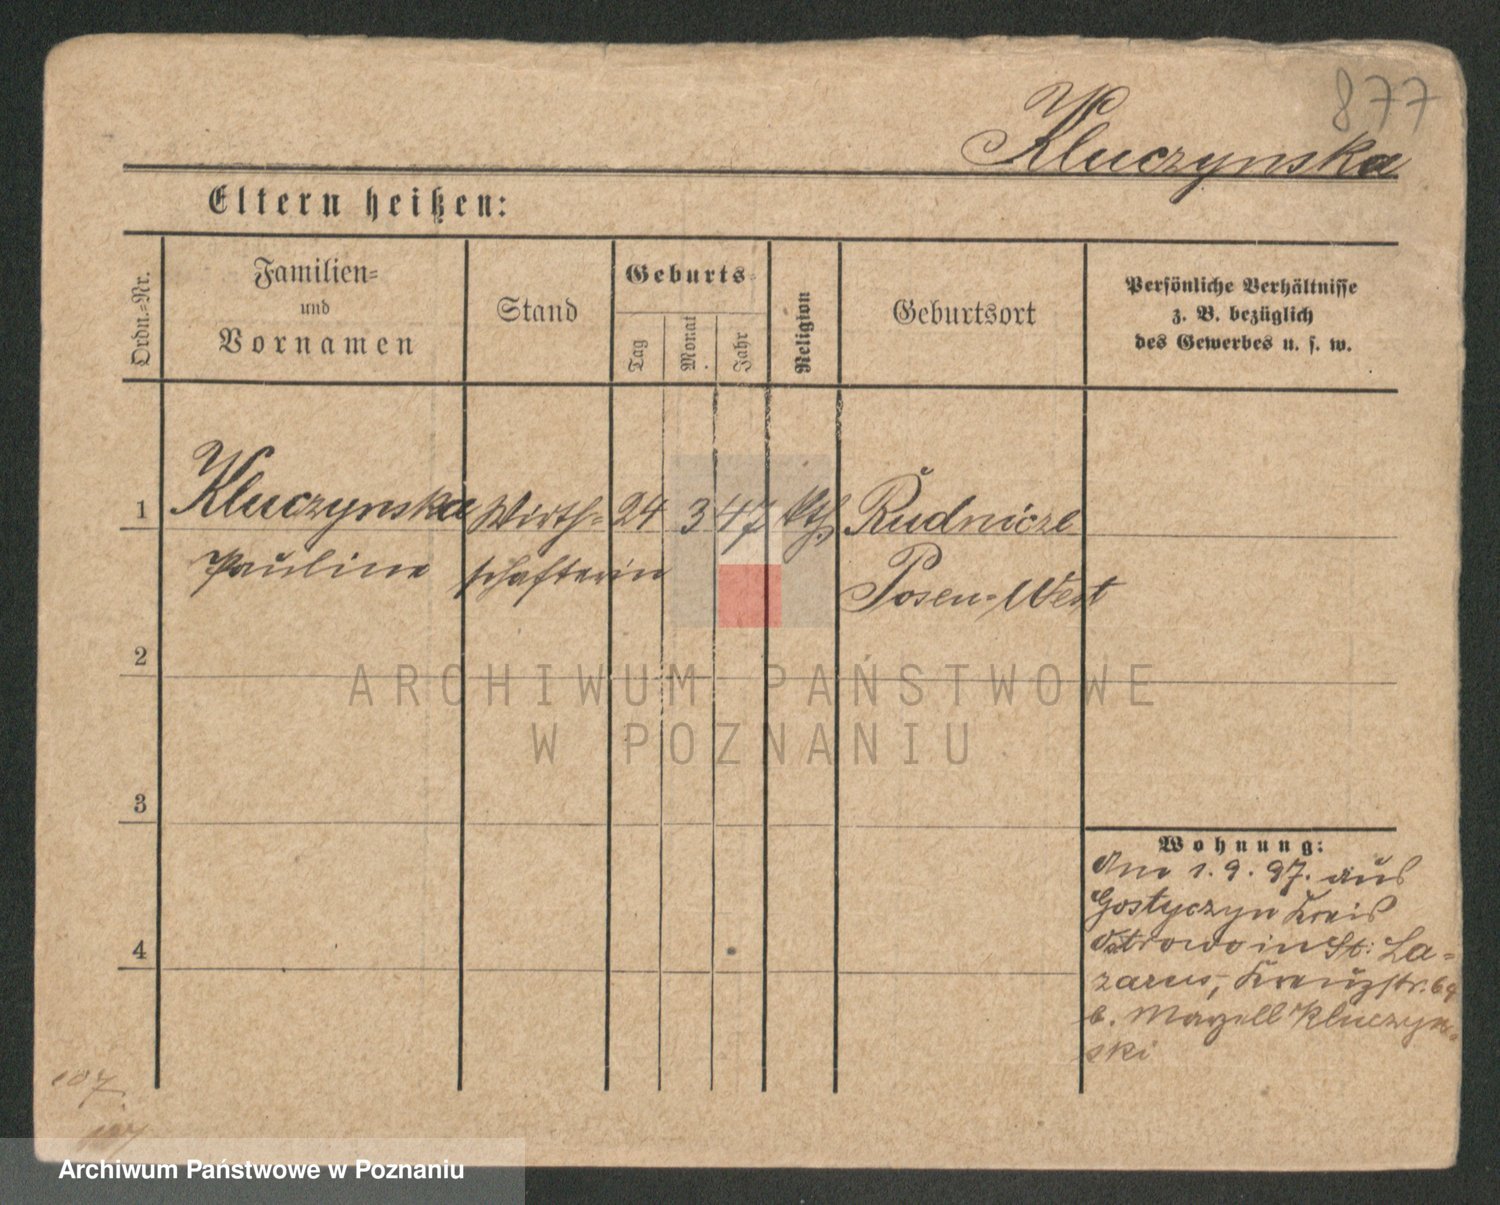 877
Kluczynska
Eltern heißen:
Ordn.=Nr.
Familien=
und
Vornamen
Stand
Geburts=
Tag
Monat
Jahr
Religion
Geburtsort
Persönliche Verhältnisse
z. B. bezüglich
des Gewerbes u. s. w.
1 Kluczynska Wirth= 24 3 47 kth. Rudnicze
Pauline schafterin Posen-West
2
ARCHIWUM PAŃSTWOWE
W POZNANIU
3
Wohnung:
Am 1.9.97. aus
Gostyczyn Kreis
Ostrowo in St: La=
zarus, Kreuzstr. 6
b. Kluczyn=
ski
4
107
Archiwum Państwowe w Poznaniu